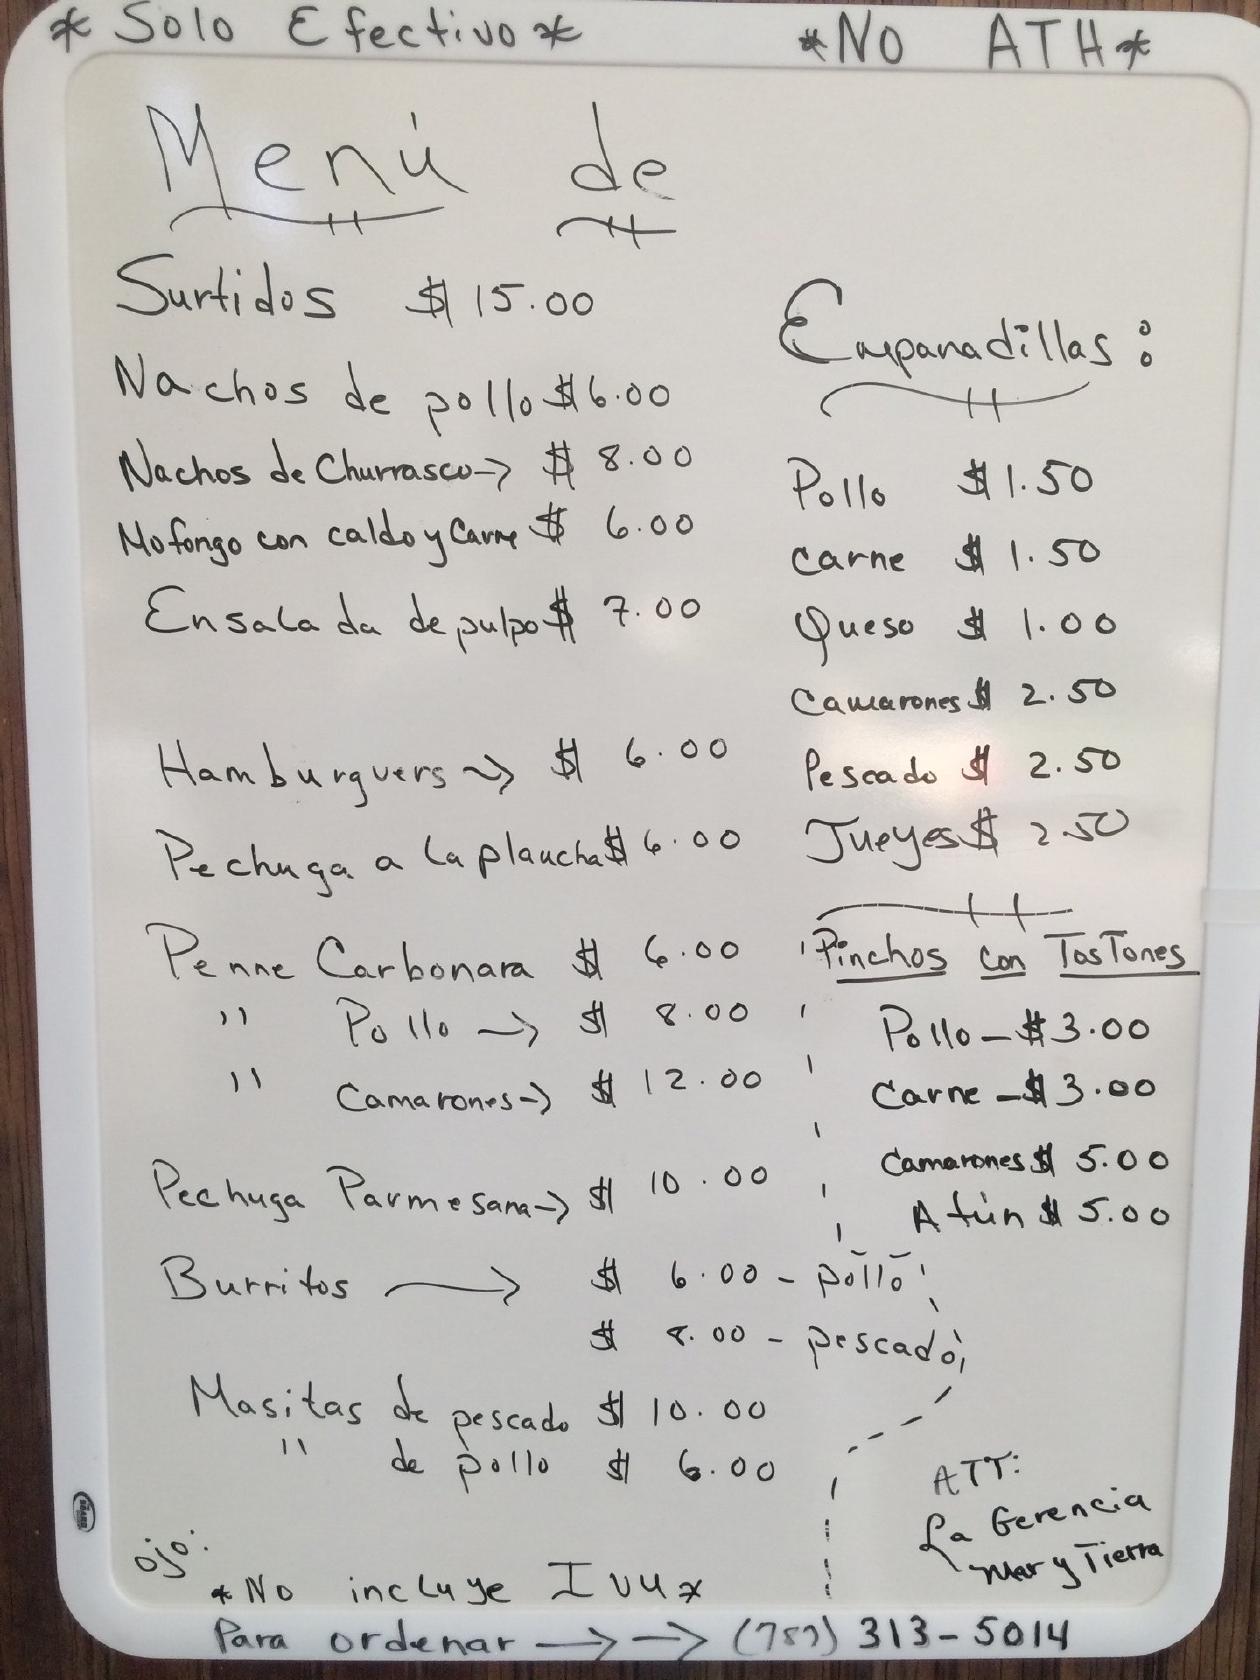 *Solo Efectivo* *NO ATH*
Menú de
Surtidos $15.00
Nachos de pollo $6.00
Nachos de Churrasco→ $ 8.00
Mofongo con caldo y Carne $ 6.00
Ensalada de pulpo $ 7.00
Hamburguers → $ 6.00
Pechuga a la plancha $ 6.00
Penne Carbonara $ 6.00
" Pollo → $ 8.00
" Camarones→ $ 12.00
Pechuga Parmesana→ $ 10.00
Burritos → $ 6.00 - pollo
$ 8.00 - pescado
Masitas de pescado $ 10.00
" de pollo $ 6.00
Empanadillas:
Pollo $1.50
Carne $ 1.50
Queso $ 1.00
Camarones $ 2.50
Pescado $ 2.50
Jueyes $ 2.50
Pinchos con Tostones
Pollo - $3.00
Carne - $3.00
Camarones $ 5.00
Atún $ 5.00
ATT:
La Gerencia
Mar y Tierra
Ojo:
*No incluye IVU*
Para ordenar → → (787) 313-5014